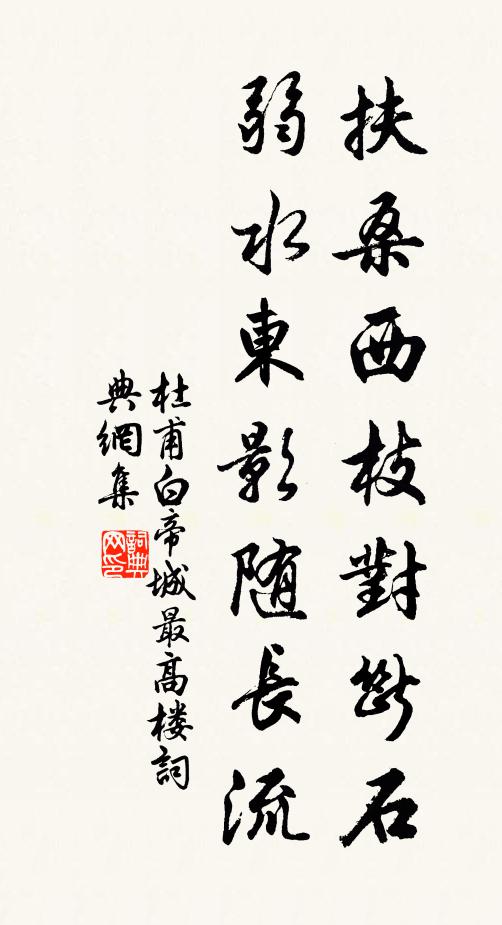 扶桑西枝對斷石
弱水東影随長流
杜甫白帝城最高楼詞
典網集
詞典
网印